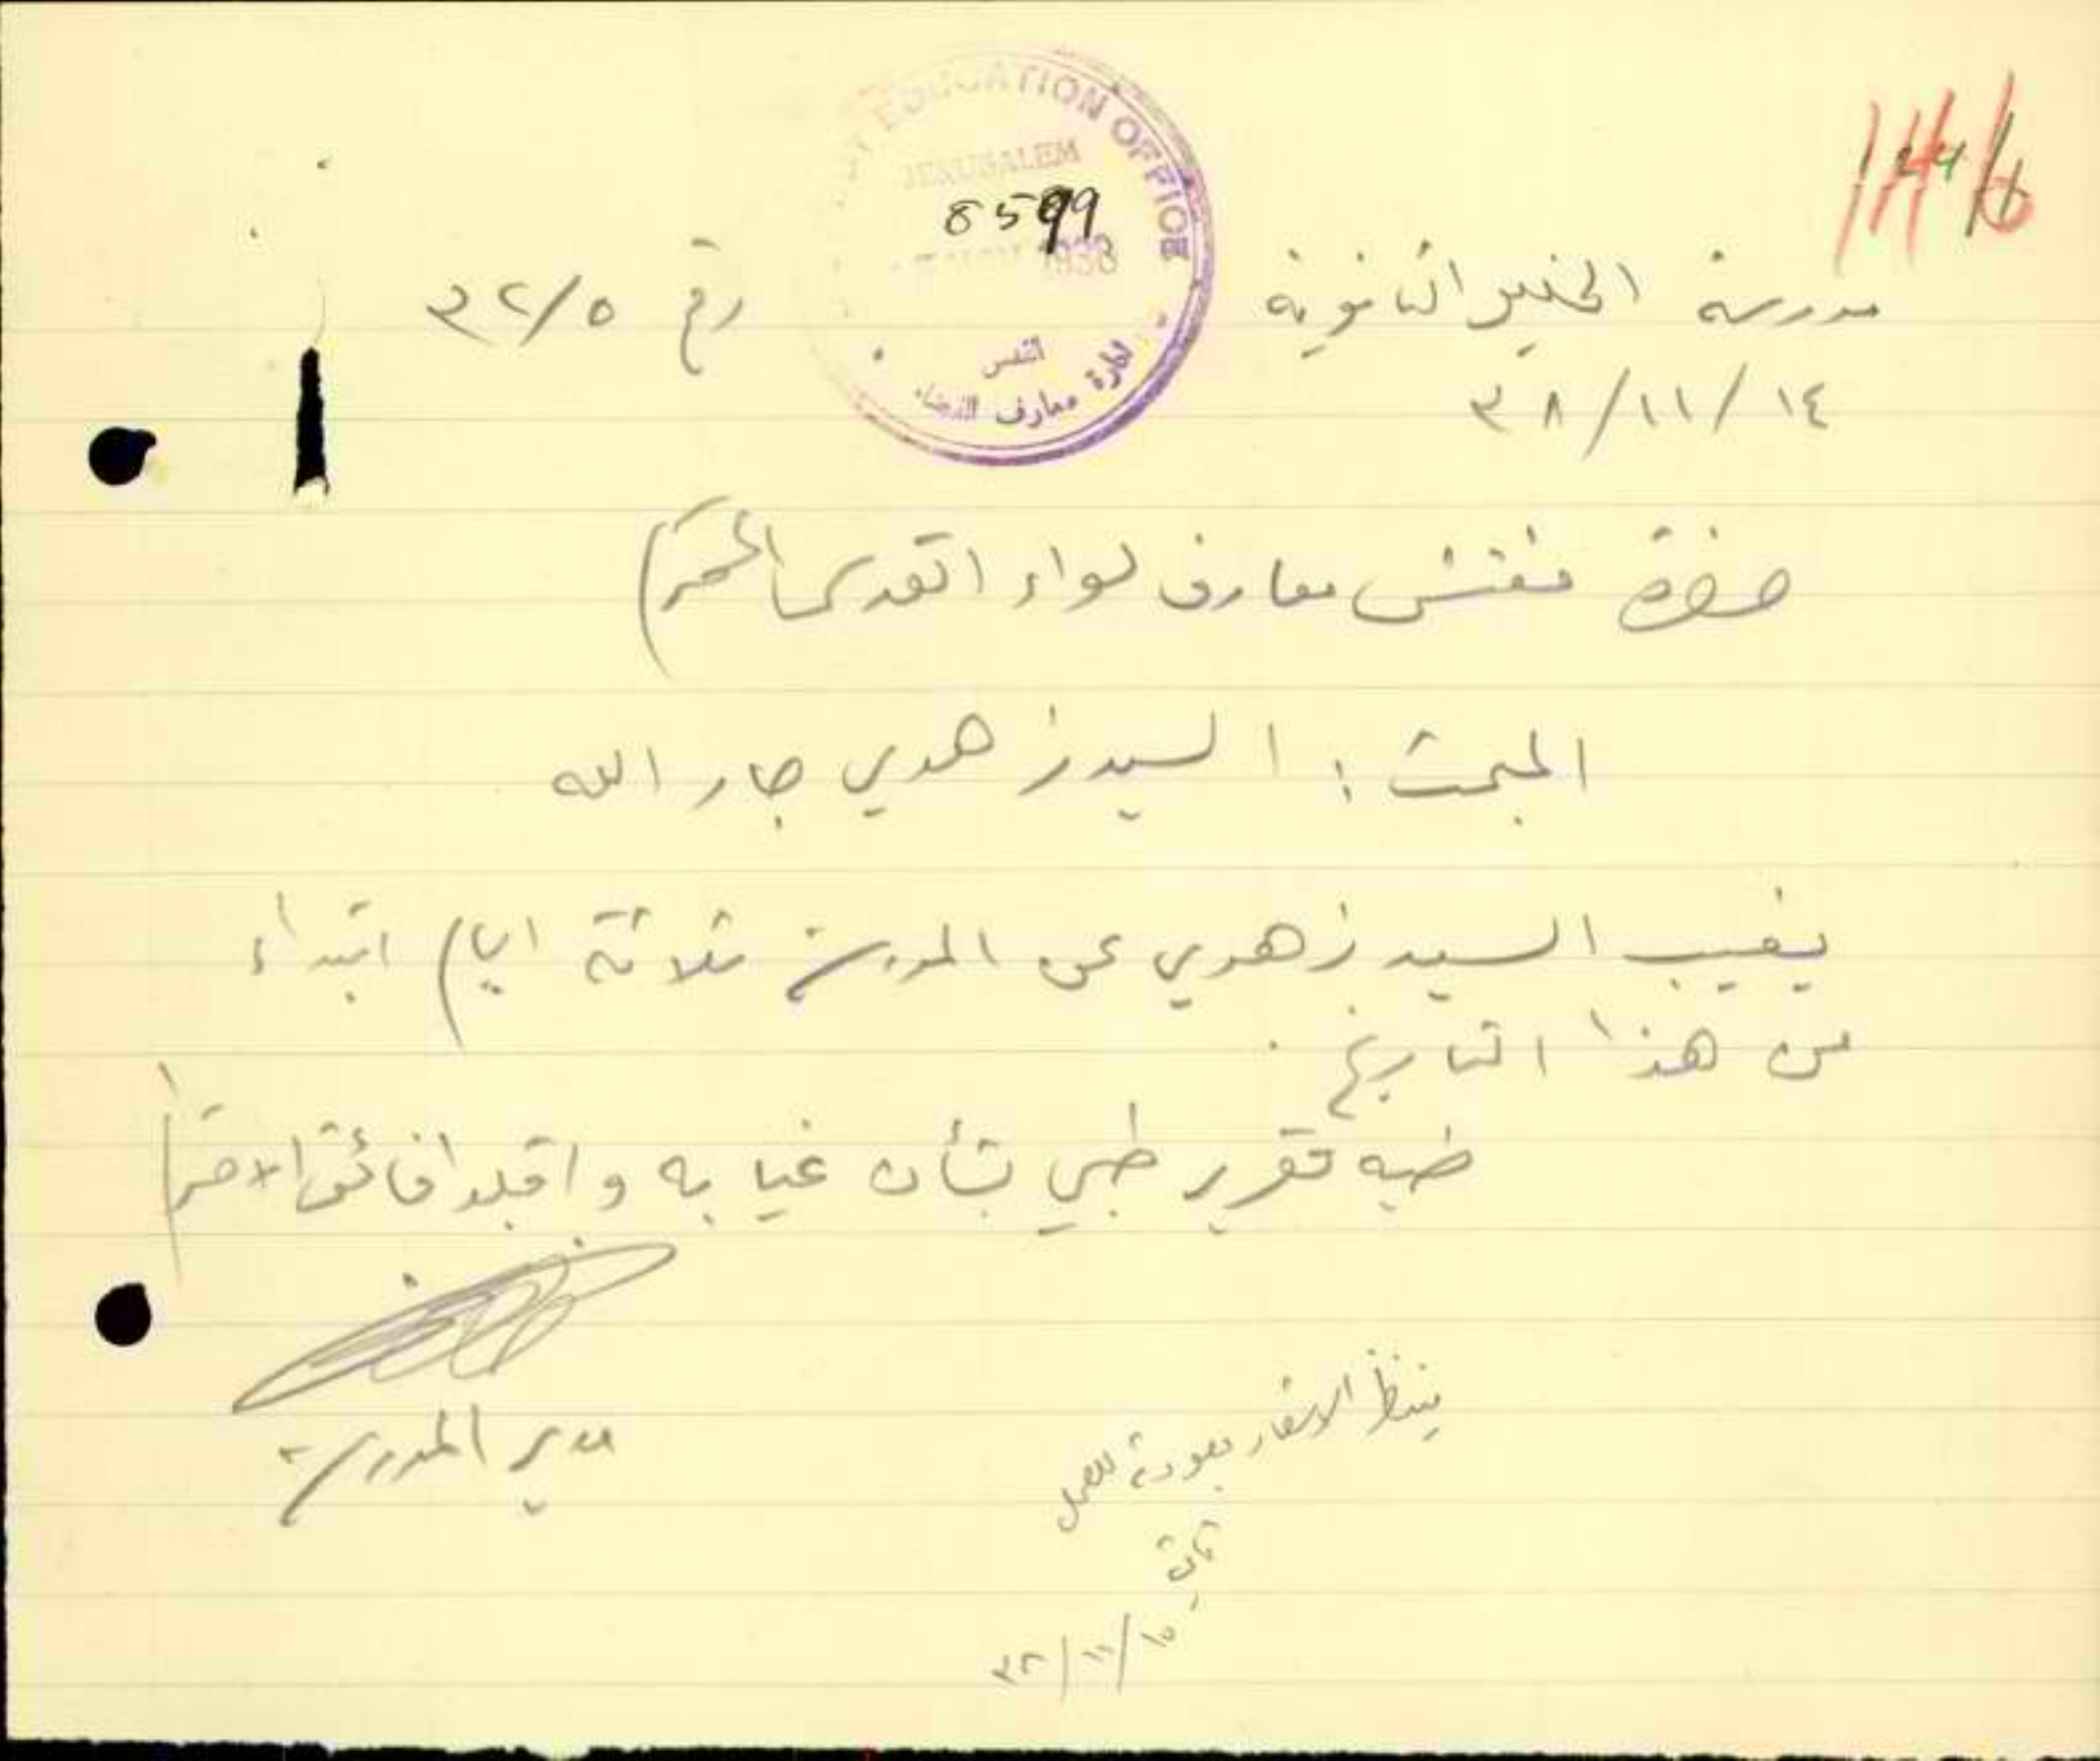 144/6
EDUCATION OFFICE
JERUSALEM
8599
NOV 1938
القدس
ادارة معارف القضاء
مدرسة الخليل الثانوية
رقم ٣٢/٥
٣٨/١١/١٤
حضرة مفتش معارف لواء القدس المحترم
المبحث: السيد زهدي جار الله
يغيب السيد زهدي عن المدرسة ثلاثة ايام ابتداء
من هذا التاريخ.
طيه تقرير طبي بشأن غيابه واقبلوا فائق الاحترام
مدير المدرسة
ينتظر الاشعار بعودته للعمل
١١/١٥